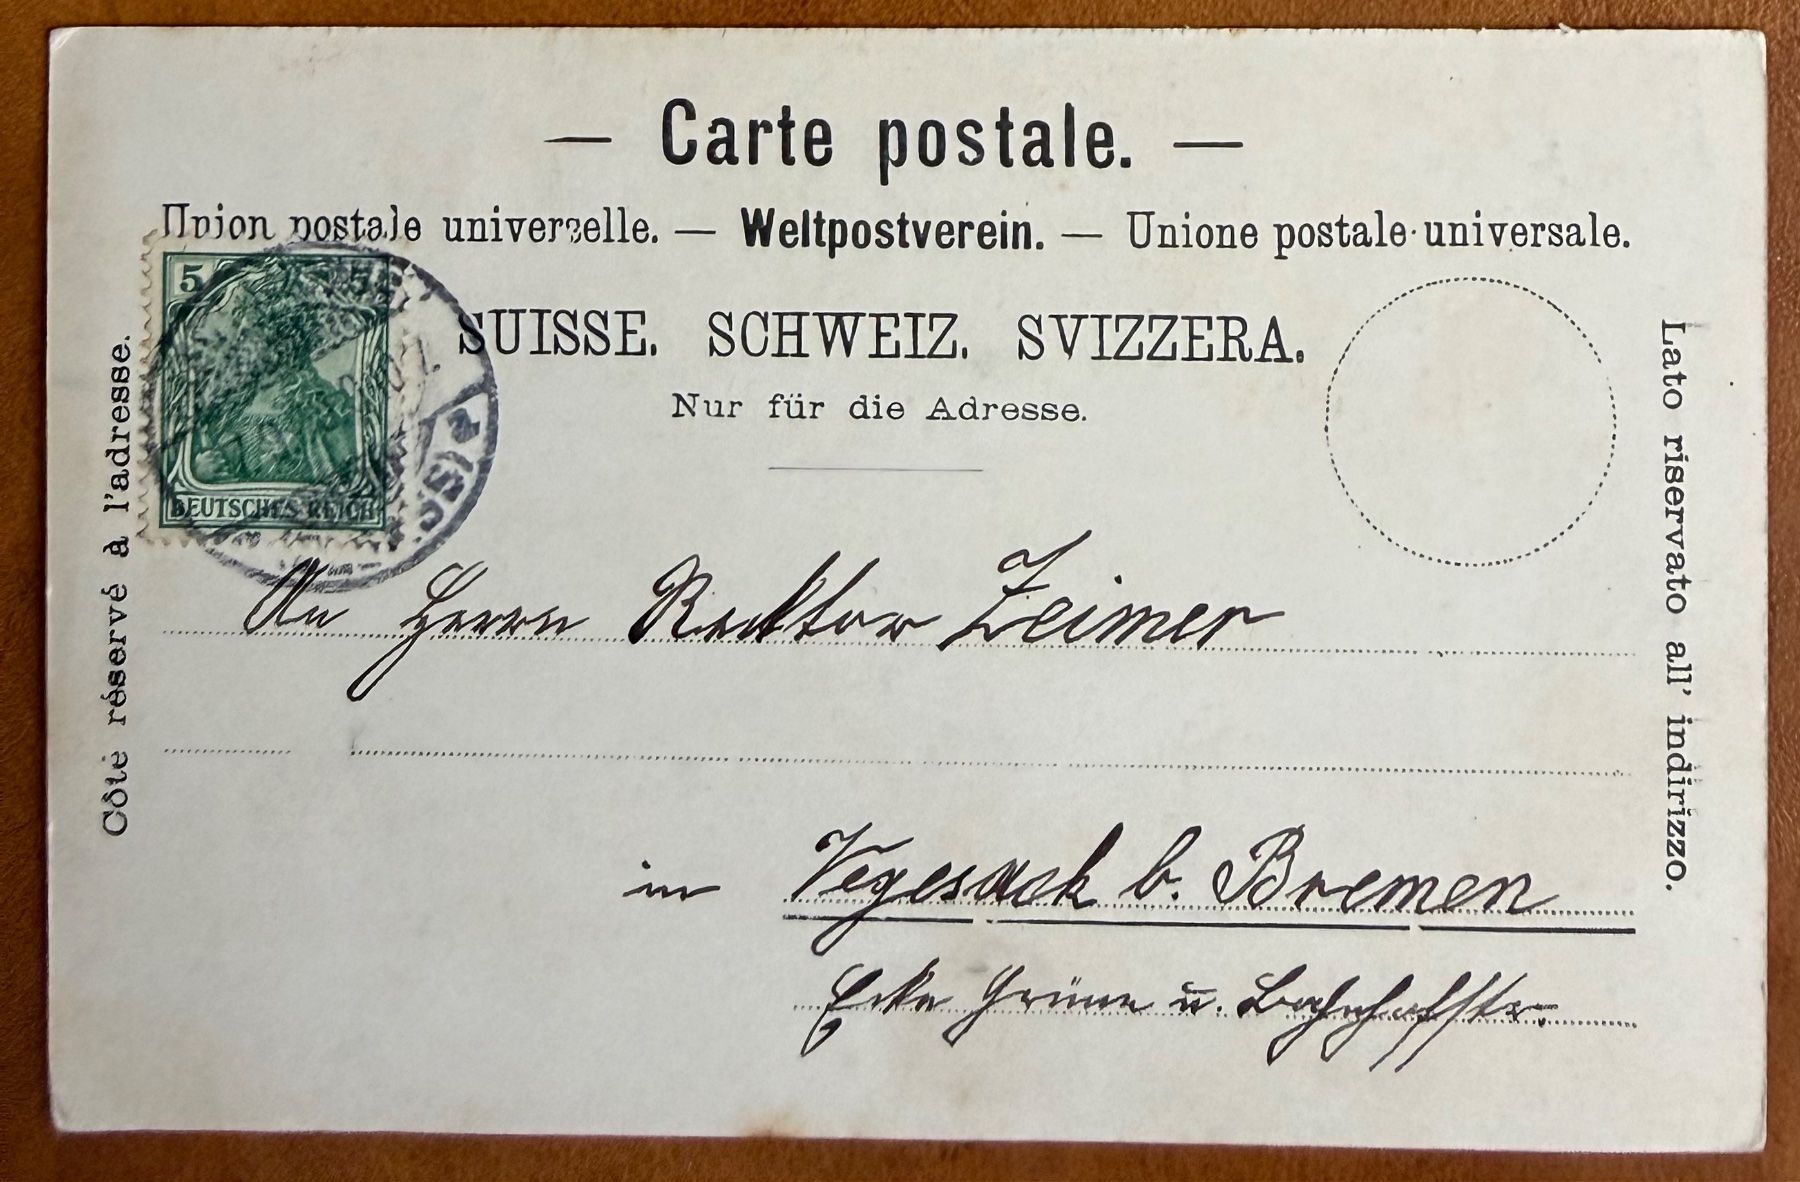 — Carte postale. —
Union postale universelle. — Weltpostverein. — Unione postale universale.
5 5
SUISSE. SCHWEIZ. SVIZZERA.
Nur für die Adresse.
DEUTSCHES REICH
Côté réservé à l'adresse.
Lato riservato all' indirizzo.
An Herrn Rektor Zeimer
in Vegesack b. Bremen
Ecke Grüne u. Bahnhofstr.